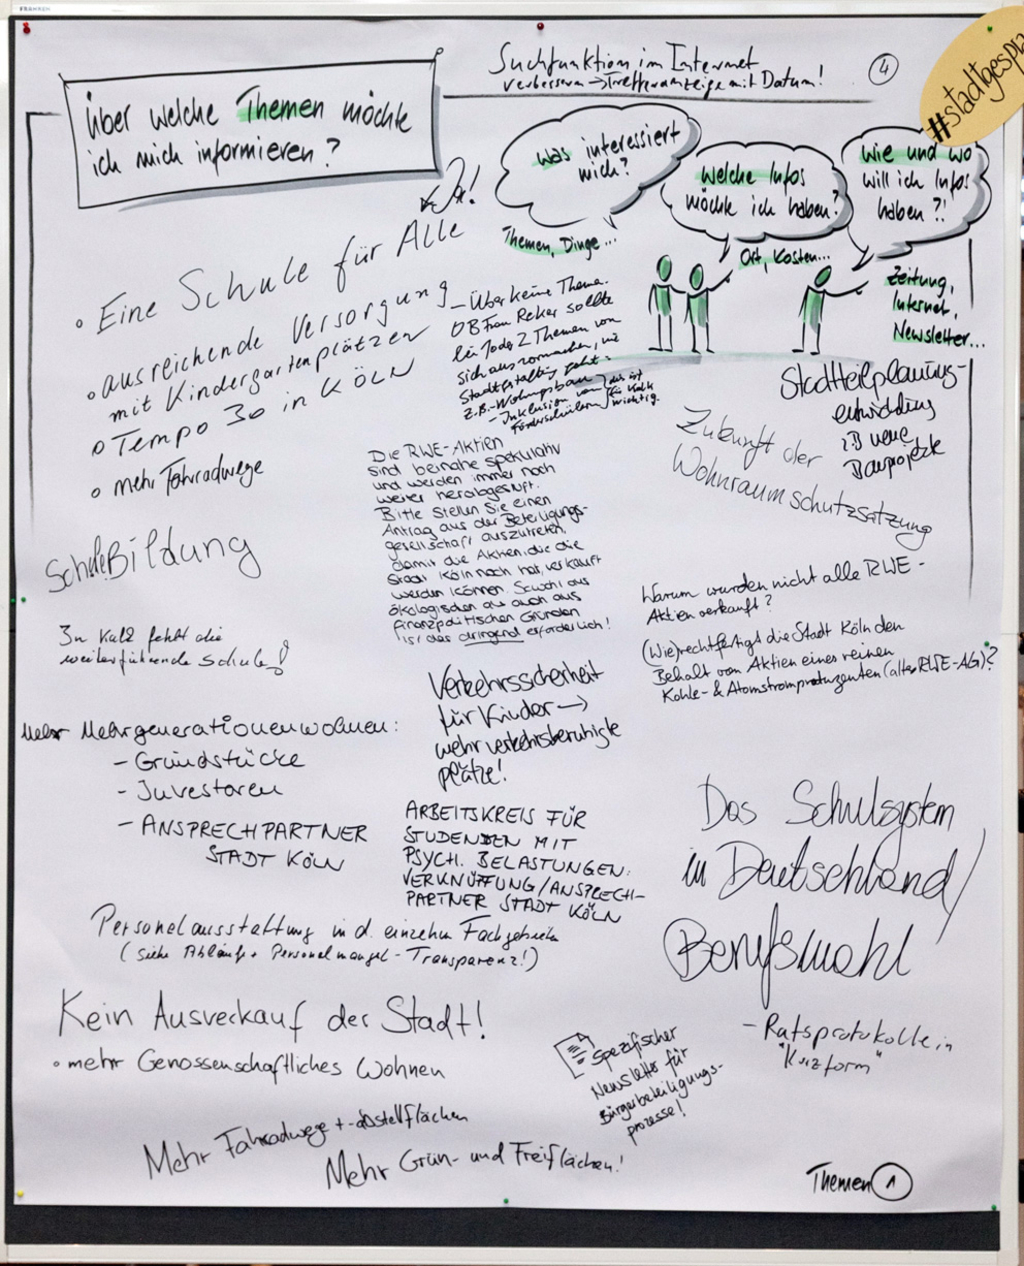 FRANKEN
#stadtgesp
Suchfunktion im Internet
verbessern → Trefferanzeige mit Datum!
4
Über welche Themen möchte
ich mich informieren?
Was interessiert
mich?
Themen, Dinge...
Welche Infos
möchte ich haben?
Ort, Kosten...
Wie und wo
will ich Infos
haben?!
Zeitung,
Internet,
Newsletter...
Ja!
• Eine Schule für Alle
• ausreichende Versorgung
mit Kindergartenplätzen
• Tempo 30 in KÖLN
• mehr Fahrradwege
- Über keine Thema.
OB Frau Reker sollte
bei 1 oder 2 Themen von
sich aus vormachen, wie
Stadtgestaltung geht.
z.B. - Wohnungsbau
- Inklusion von
Förderschülern
das ist
für Kalk
wichtig.
Stadtteilplanung-
entwicklung
zB neue
Bauprojekte
Zukunft der
Wohnraumschutzsatzung
Die RWE-Aktien
sind beinahe spekulativ
und werden immer noch
weiter herabgestuft.
Bitte stellen Sie einen
Antrag aus der Beteiligungs-
gesellschaft auszutreten,
damit die Aktien, die die
Stadt Köln noch hat, verkauft
werden können. Sowohl aus
ökologischen als auch aus
finanzpolitischen Gründen
ist das dringend erforderlich!
Schule Bildung
In Kalk fehlt die
weiterführende Schule!
Warum wurden nicht alle RWE-
Aktien verkauft?
(Wie) rechtfertigt die Stadt Köln den
Behalt von Aktien eines reinen
Kohle- & Atomstromproduzenten (alte RWE-AG)?
Verkehrssicherheit
für Kinder →
mehr verkehrsberuhigte
plätze!
Mehr Mehrgenerationenwohnen:
- Grundstücke
- Investoren
- ANSPRECHPARTNER
STADT KÖLN
ARBEITSKREIS FÜR
STUDENDEN MIT
PSYCH. BELASTUNGEN:
VERKNÜPFUNG/ANSPRECH-
PARTNER STADT KÖLN
Das Schulsystem
in Deutschland/
Berufswahl
Personalausstattung in d. einzelnen Fachgebieten
(siehe Abläufe + Personalmangel - Transparenz!)
Kein Ausverkauf der Stadt!
• mehr Genossenschaftliches Wohnen
- Ratsprotokolle in
"Kurzform"
Spezifischer
Newsletter für
Bürgerbeteiligungs-
prozesse!
Mehr Fahrradwege + -abstellflächen
Mehr Grün- und Freiflächen!
Themen 1